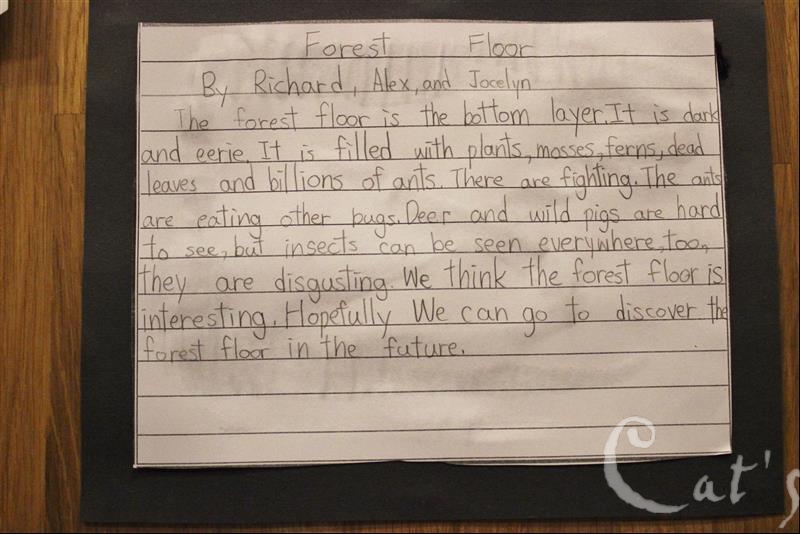 Forest Floor
By Richard, Alex, and Jocelyn
The forest floor is the bottom layer. It is dark
and eerie. It is filled with plants, mosses, ferns, dead
leaves and billions of ants. There are fighting. The ants
are eating other bugs. Deer and wild pigs are hard
to see, but insects can be seen everywhere, too,
they are disgusting. We think the forest floor is
interesting. Hopefully We can go to discover the
forest floor in the future.
Cat's